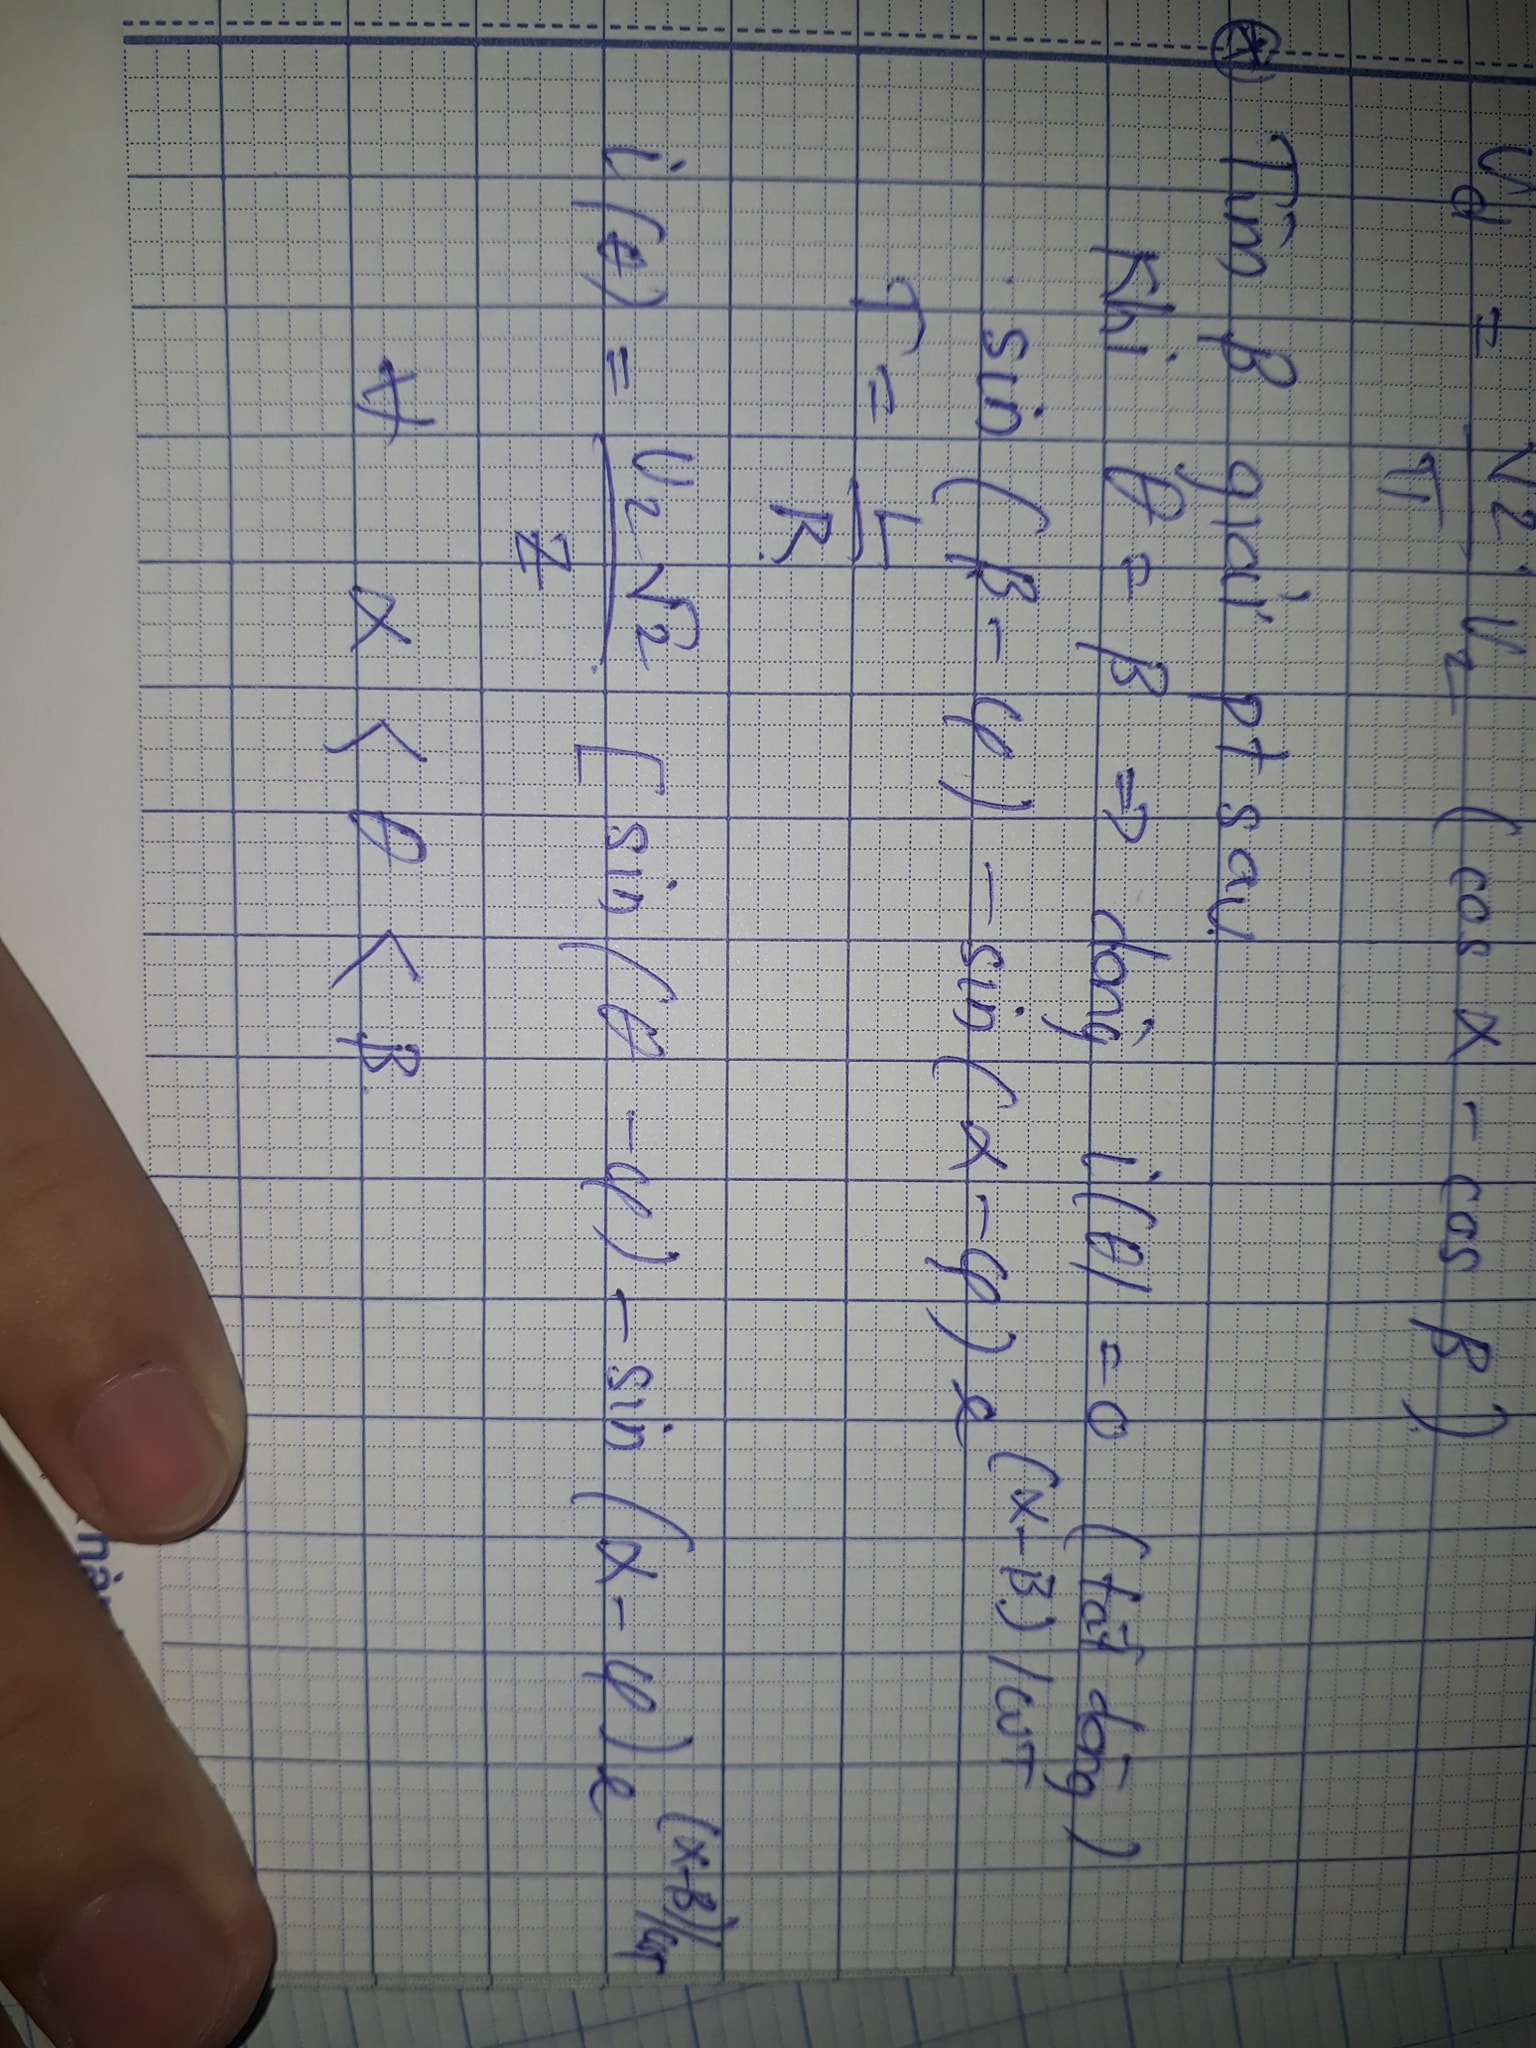 Ud = √2/π U2 (cos α - cos β)
⊛ Tìm β giải pt sau.
Khi θ = β => dòng i(θ) = 0 (tắt dòng)
sin(β-φ) - sin(α-φ) e^(α-β)/ωT
T = L/R
i(θ) = U2√2/Z [sin(θ-φ) - sin(α-φ) e^(α-β)/ωT
∀ α < θ < β.